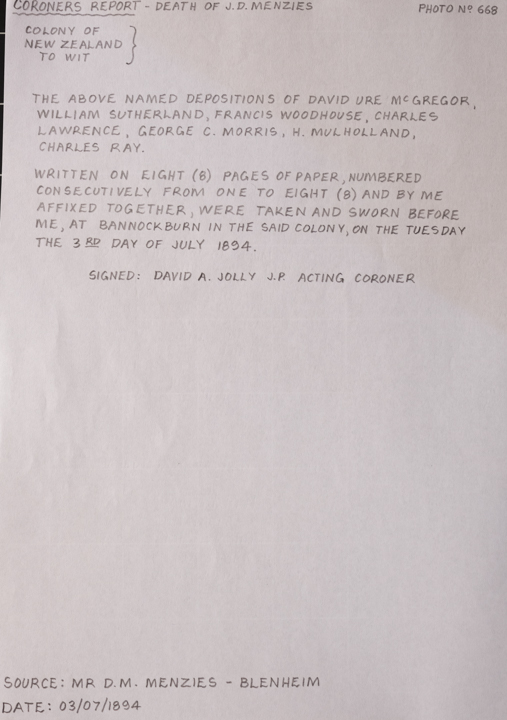 CORONERS REPORT - DEATH OF J.D. MENZIES
PHOTO Nº 668
COLONY OF
NEW ZEALAND
TO WIT
THE ABOVE NAMED DEPOSITIONS OF DAVID URE McGREGOR,
WILLIAM SUTHERLAND, FRANCIS WOODHOUSE, CHARLES
LAWRENCE, GEORGE C. MORRIS, H. MULHOLLAND,
CHARLES RAY.
WRITTEN ON EIGHT (8) PAGES OF PAPER, NUMBERED
CONSECUTIVELY FROM ONE TO EIGHT (8) AND BY ME
AFFIXED TOGETHER, WERE TAKEN AND SWORN BEFORE
ME, AT BANNOCKBURN IN THE SAID COLONY, ON THE TUESDAY
THE 3RD DAY OF JULY 1894.
SIGNED: DAVID A. JOLLY J.P. ACTING CORONER
SOURCE: MR D.M. MENZIES - BLENHEIM
DATE: 03/07/1894